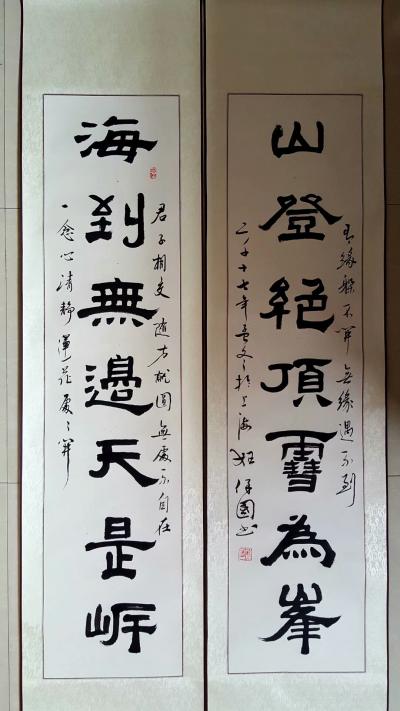 海到無邊天是岸
君子相交 隨方就圓 無處不自在
一念心清靜 蓮花處處開
山登絕頂雪為峯
有緣躲不開 無緣遇不到
二〇十七年 於上海 國書